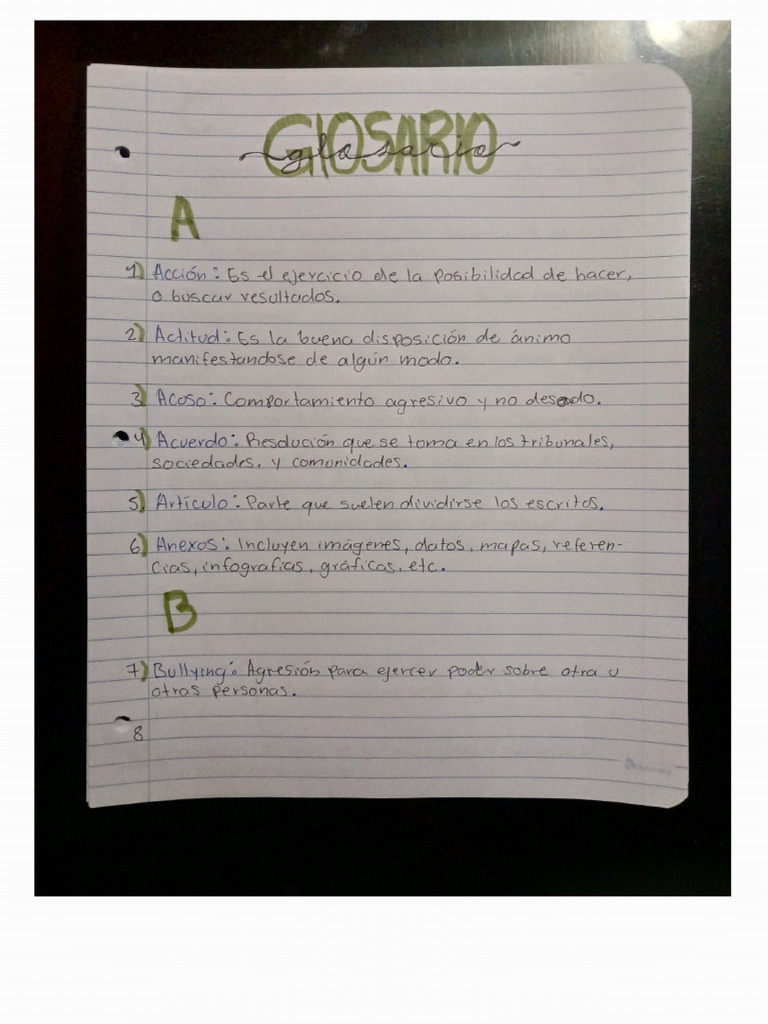 GlOSARIO
glosario
A
1) Acción: Es el ejercicio de la posibilidad de hacer,
o buscar resultados.
2) Actitud: Es la buena disposición de ánimo
manifestandose de algún modo.
3) Acoso: Comportamiento agresivo y no deseado.
4) Acuerdo: Resolución que se toma en los tribunales,
sociedades, y comunidades.
5) Artículo: Parte que suelen dividirse los escritos.
6) Anexos: Incluyen imágenes, datos, mapas, referen-
cias, infografías, gráficas, etc.
B
7) Bullying: Agresión para ejercer poder sobre otra u
otras personas.
8